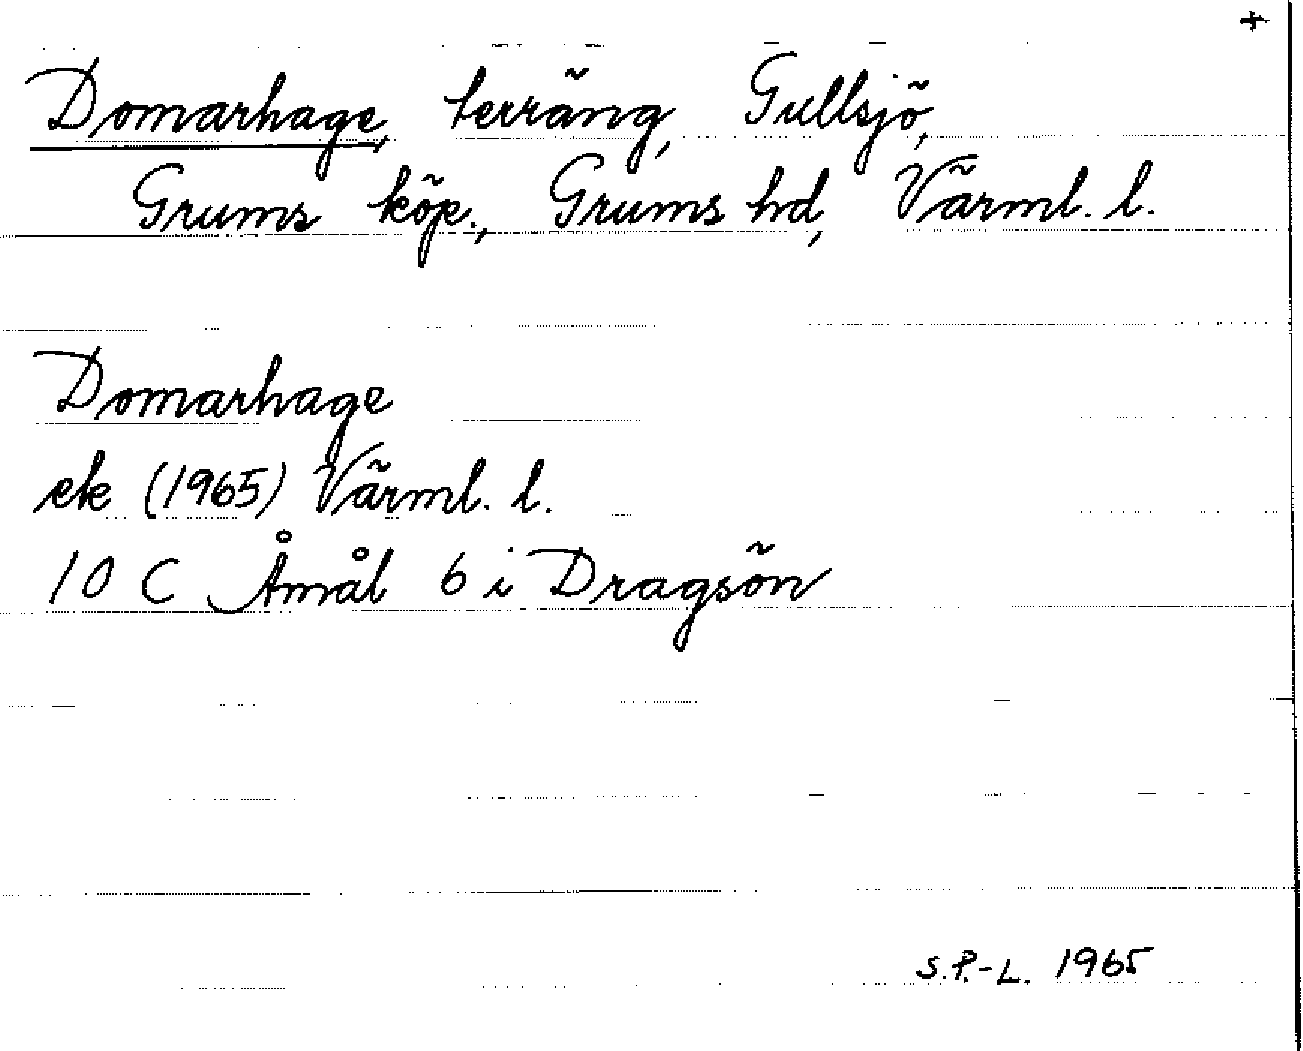 +
Domarhage, terräng, Gullsjö,
Grums köp., Grums hd, Värml. l.
Domarhage
ek (1965) Värml. l.
10 C Åmål 6 i Dragsön
S.P.-L. 1965